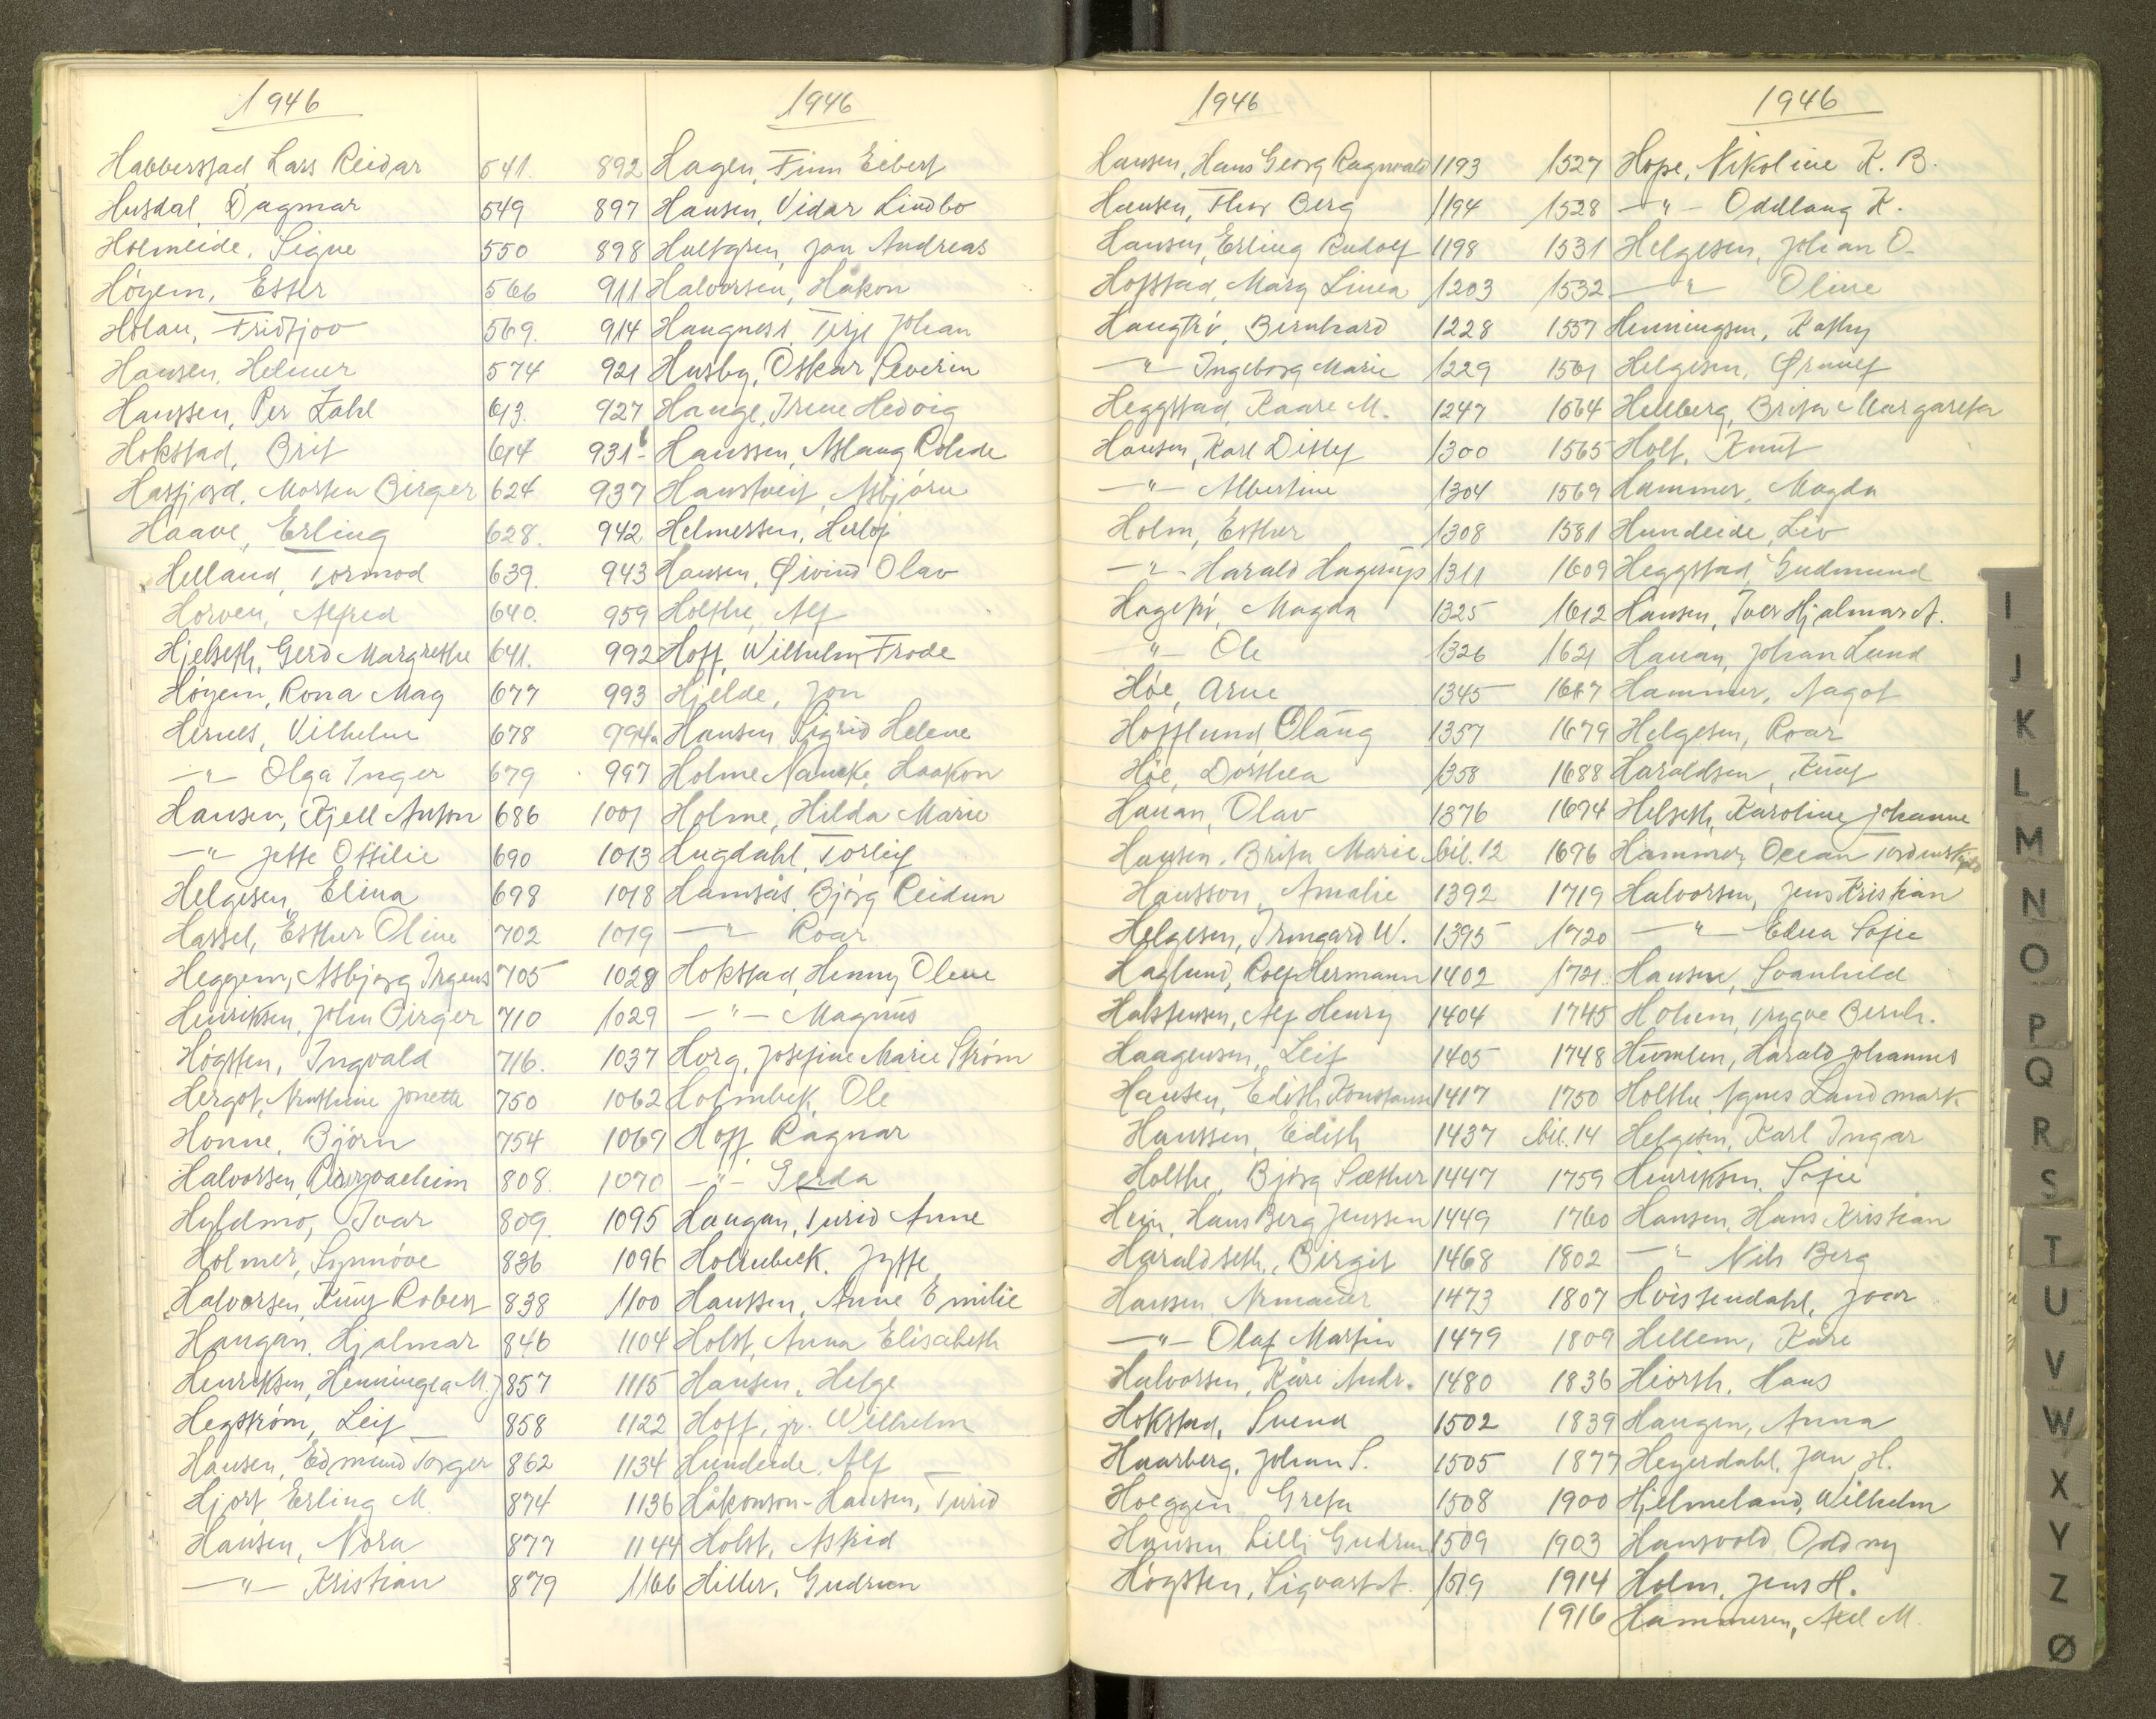 1946
Habberstad, Lars Reidar 541.
Husdal, Dagmar 549
Holmeide, Signe 550
Høyem, Ester 566
Holan, Fridtjov 569.
Hansen, Helmer 574
Hanssen, Per Zahl 613.
Hokstad, Brit 614
Hasfjord, Morten Birger 624
Haave, Erling 628.
Helland, Tormod 639.
Horven, Alfred 640.
Hjelseth, Gerd Margrethe 641.
Høyem, Rona Mag 677
Hernes, Vilhelm 678
—"— Olga Inger 679
Hansen, Kjell Anton 686
—"— Jette Ottilie 690
Helgesen, Elina 698
Hassel, Esther Oline 702
Heggem, Asbjørg Irgens 705
Henriksen, John Birger 710
Høgsten, Ingvald 716.
Hergot, Jonette 750
Honne, Bjørn 754
Halvorsen, 808.
Hyldmo, Ivar 809.
Holmer, Synnøve 836
Halvorsen, Knut Robert 838
Haugan, Hjalmar 846
Henriksen, Henningea M. J 857
Hegstrøm, Leif 858
Hansen, Edmund Torger 862
Hjort, Erling M. 874
Hansen, Nora 877
—"— Kristian 879
1946
892 Hagen, Finn Eibert
897 Hansen, Vidar Lindbo
898 Hultgren, Jan Andreas
911 Halvorsen, Håkon
914 Haugness, Terje Johan
921 Husby, Oskar Severin
927 Hauge, Irene Hedvig
931b Hanssen, Aslaug Rohde
937 Haustveit, Asbjørn
942 Helmersen, Herlof
943 Hansen, Øivind Olav
959 Holthe, Alf
992 Hoff, Wilhelm Frode
993 Hjelde, Jon
994a Hansen Sigrid Helene
997 Holme Haakon
1001 Holme, Hilda Marie
1013 Hugdahl, Torleif
1018 Hamsås, Bjørg Reidun
1019 —"— Roar
1028 Hokstad, Henny Olene
1029 —"— Magnus
1037 Horg, Josefine Marie Strøm
1062 Holmbek, Ole
1069 Hoff, Ragnar
1070 —"— Gerda
1095 Haugan, Turid Anne
1096 Holmbeck, Jytte
1100 Hanssen, Anne Emilie
1104 Holst, Anna Elisabeth
1115 Hansen, Helge
1122 Hoff, jr. Wilhelm
1134 Hundeide, Alf
1136 Håkonson-Hansen, Turid
1144 Holst, Astrid
1166 Hiller, Gudrun
1946
Hansen, Hans Georg Ragnvald 1193
Hansen, Thor Berg 1194
Hansen, Erling Rudolf 1198
Hofstad, Marg Linea 1203
Haugtrø, Bernhard 1228
—"— Ingeborg Marie 1229
Heggstad, Kaare M. 1247
Hansen, Karl Ditlef 1300
—"— Albertine 1304
Holm, Esther 1308
—"— Harald Hagerup 1311
Magda 1325
—"— Ole 1326
Høe, Arne 1345
Hofflund, Olaug 1357
Høe, Dorthea 1358
Hanan, Olav 1376
Hansen, Brita Marie bil. 12
Hansson, Amalie 1392
Helgesen, Irmgard W. 1395
Haglund, Rolf Hermann 1402
Halstensen, Alf Henry 1404
Haagensen, Leif 1405
Hansen, Edith Konstanse 1417
Hanssen, Edith 1437
Holthe, Bjørg Sæther 1447
Hein, Hans Berg Jenssen 1449
Haraldseth, Birgit 1468
Hansen, Armauer 1473
—"— Olaf Martin 1479
Halvorsen, Kåre Andr. 1480
Hokstad, Svend 1502
Haarberg, Johan S. 1505
Hoeggen Greta 1508
Hansen Lilli Gudrun 1509
Høgsten, Sigvart A. 1519
1946
1527 Hope, Nikoline K. B.
1528 —"— Oddlaug K.
1531 Helgesen, Johan O.
1532 —"— Oline
1557 Henningsen, Kathy
1561 Helgesen, Ørnulf
1564 Hellberg, Brita Margareta
1565 Holt, Knut
1569 Hammer, Magda
1581 Hundeide, Liv
1609 Heggstad, Gudmund
1612 Hansen, Iver Hjalmar A.
1621 Hanan, Johan Lund
1667 Hammer, Aagot
1679 Helgesen, Roar
1688 Haraldsen, Knut
1694 Helseth, Karoline Johanne
1696 Hammer, Ocean Tordenskjold
1719 Halvorsen, Jens Kristian
1720 —"— Edea Sofie
1721. Hansen, Svanhild
1745 Holum, Trygve Bernh.
1748 Humlen, Harald Johannes
1750 Holthe, Agnes Landmark
bil. 14 Helgesen, Karl Ingar
1759 Henriksen, Sofie
1760 Hansen, Hans Kristian
1802 —"— Nils Berg
1807 Hvistendahl, Joar
1809 Hellem, Kåre
1836 Hiorth, Hans
1839 Haugen, Anna
1877 Heyerdahl, Jan H.
1900 Hjelmeland, Wilhelm
1903 Hansvold Oddny
1914 Holm, Jens H.
1916 Hammeren, Axel M.
I
J
K
L
M
N
O
P
Q
R
S
T
U
V
W
X
Y
Z
Ø